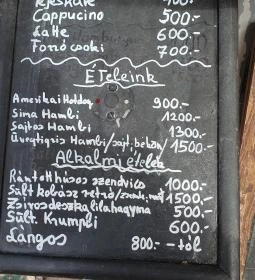 Tejeskávé 400.-
Cappucino 500.-
Latte 600.-
Forró csoki 700.-
Ételeink
Amerikai Hotdog 900.-
Sima Hambi 1200.-
Sajtos Hambi 1300.-
Üvegtigris Hambi/sajt, bekon/ 1500.-
Alkalmi ételek
Rántotthúsos szendvics 1000.-
Sült kolbász retró/ 1500.-
Zsíros deszka, lilahagyma 500.-
Sült. Krumpli 600.-
Lángos 800.- -tól